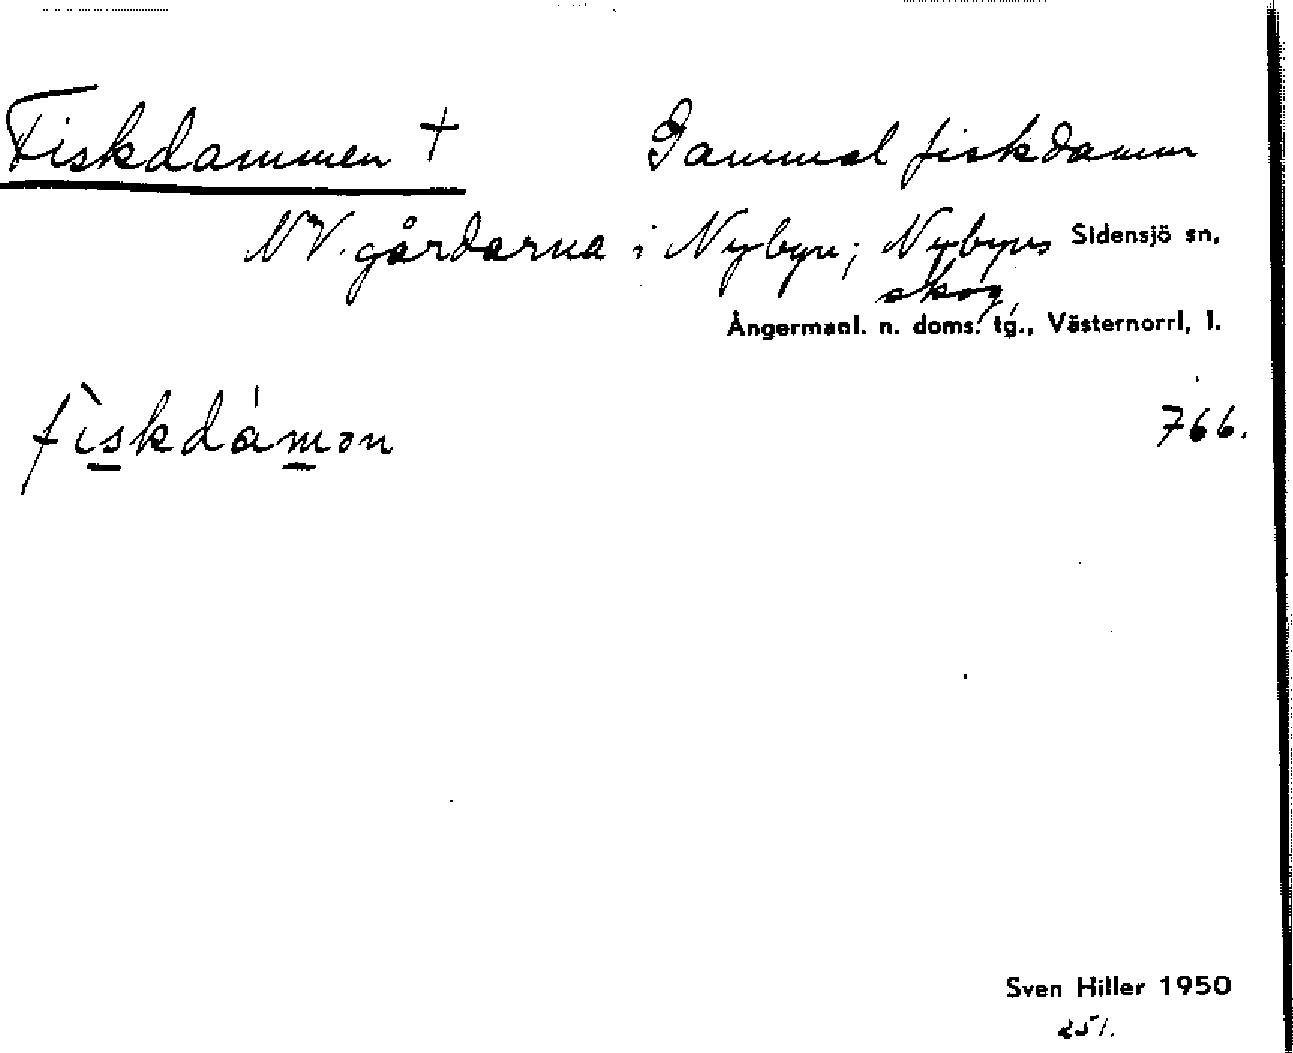 Fiskdammen † Gammal fiskdamm
NV. gårdarna i Nybyn; Nybyns Sidensjö sn,
skog
Ångermanl. n. doms. tg., Västernorrl, l.
fìskdámən 766.
Sven Hiller 1950
251.